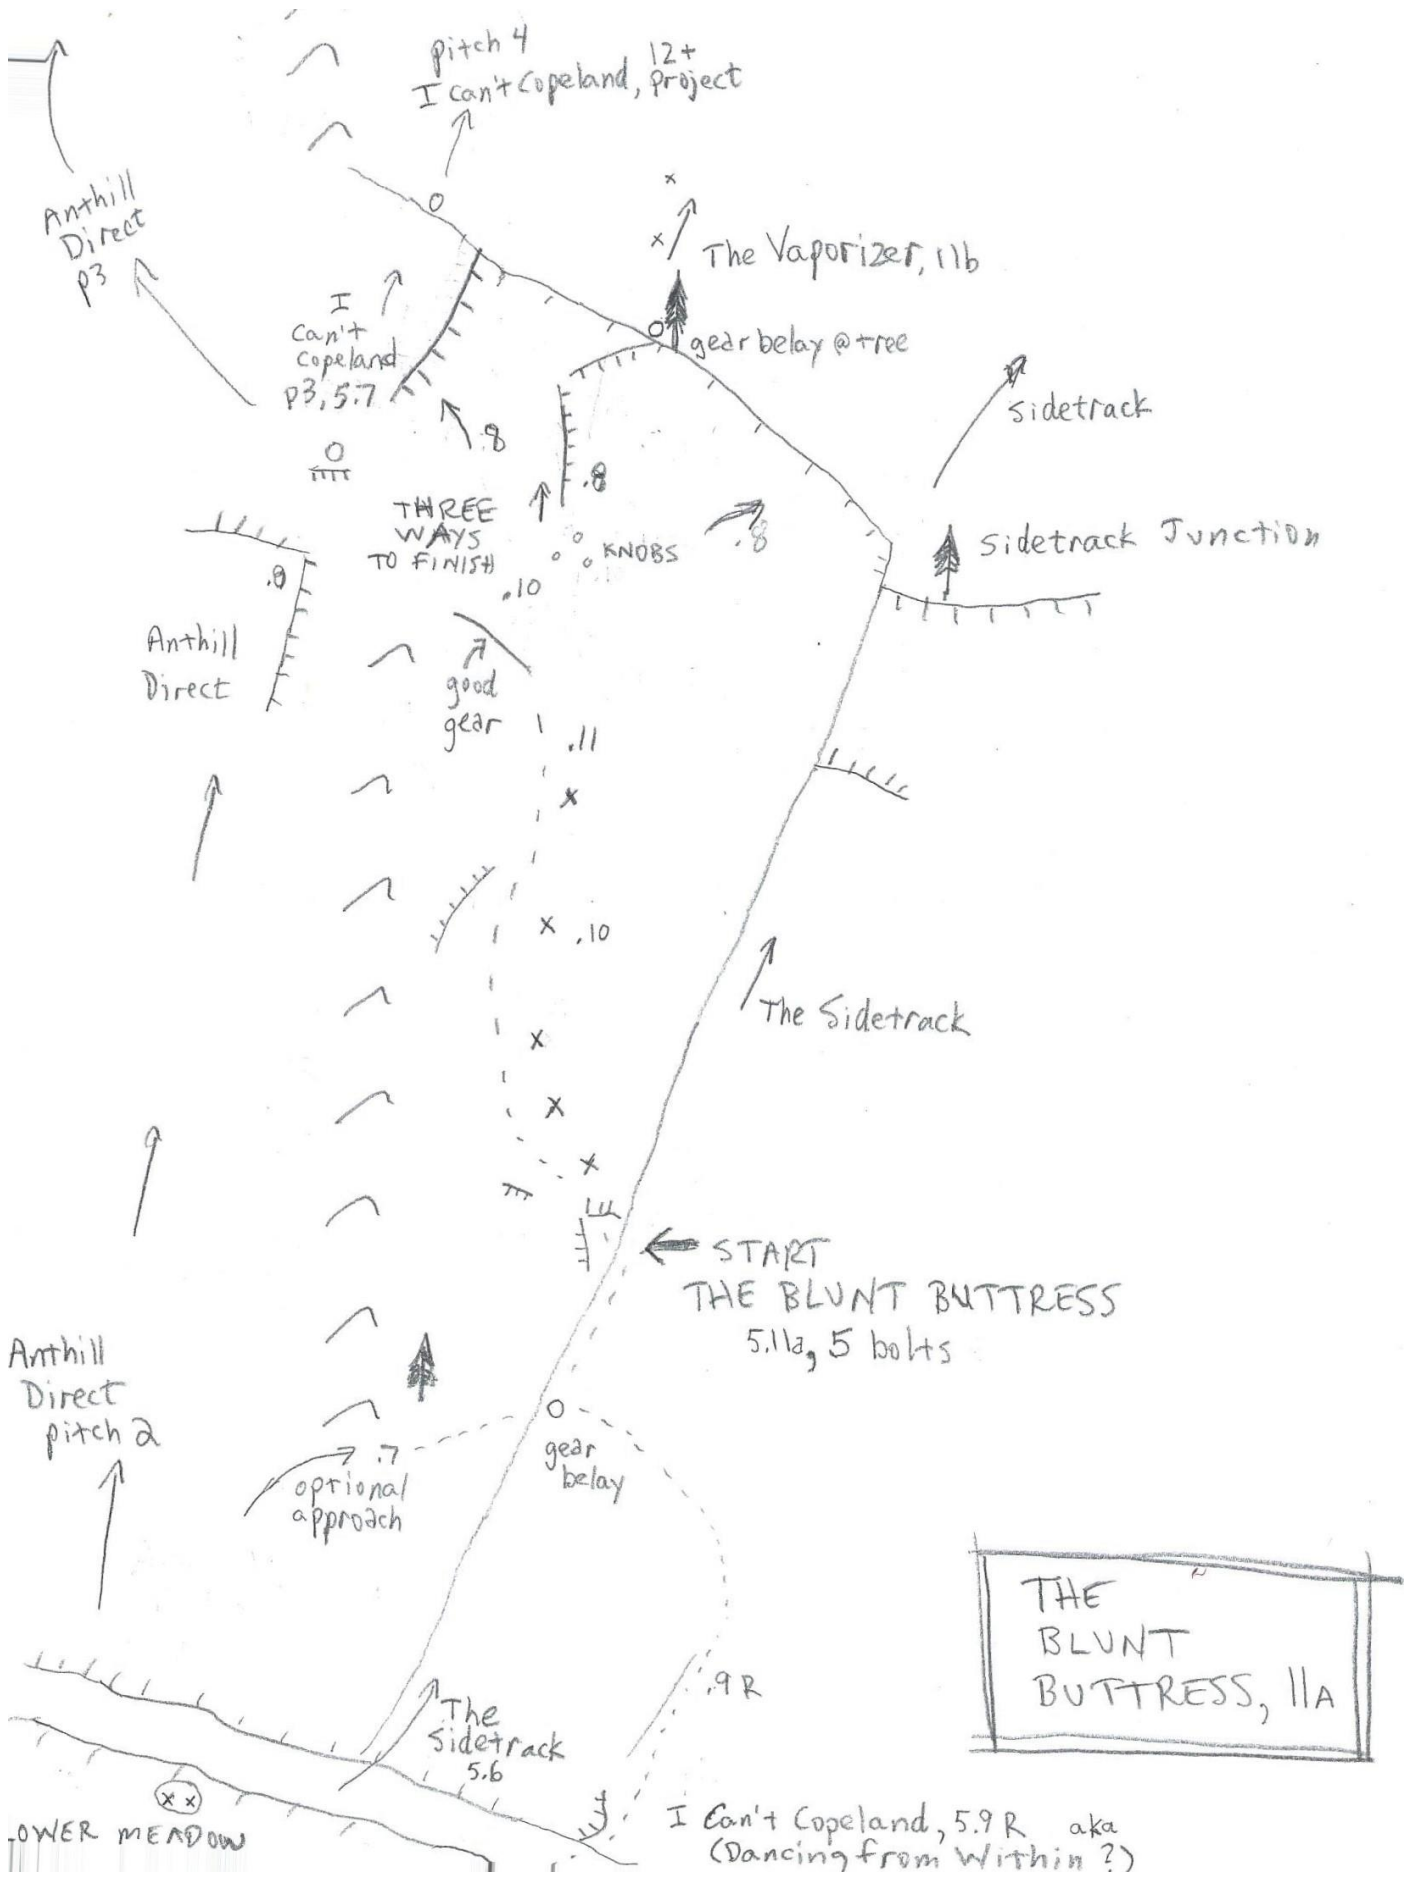 pitch 4
12+
I can't Copeland, Project
Anthill
Direct
p3
The Vaporizer, 11b
gear belay @ tree
I
can't
copeland
p3, 5.7
.8
.8
sidetrack
THREE
WAYS
TO FINISH
KNOBS
.8
Sidetrack Junction
.10
.8
Anthill
Direct
good
gear
.11
x
x
x
.10
x
x
x
x
The Sidetrack
START
THE BLUNT BUTTRESS
5.11a, 5 bolts
Anthill
Direct
pitch 2
.7
optional
approach
gear
belay
THE
BLUNT
BUTTRESS, 11A
.9 R
The
Sidetrack
5.6
x x
LOWER MEADOW
I Can't Copeland, 5.9 R aka
(Dancing from Within ?)